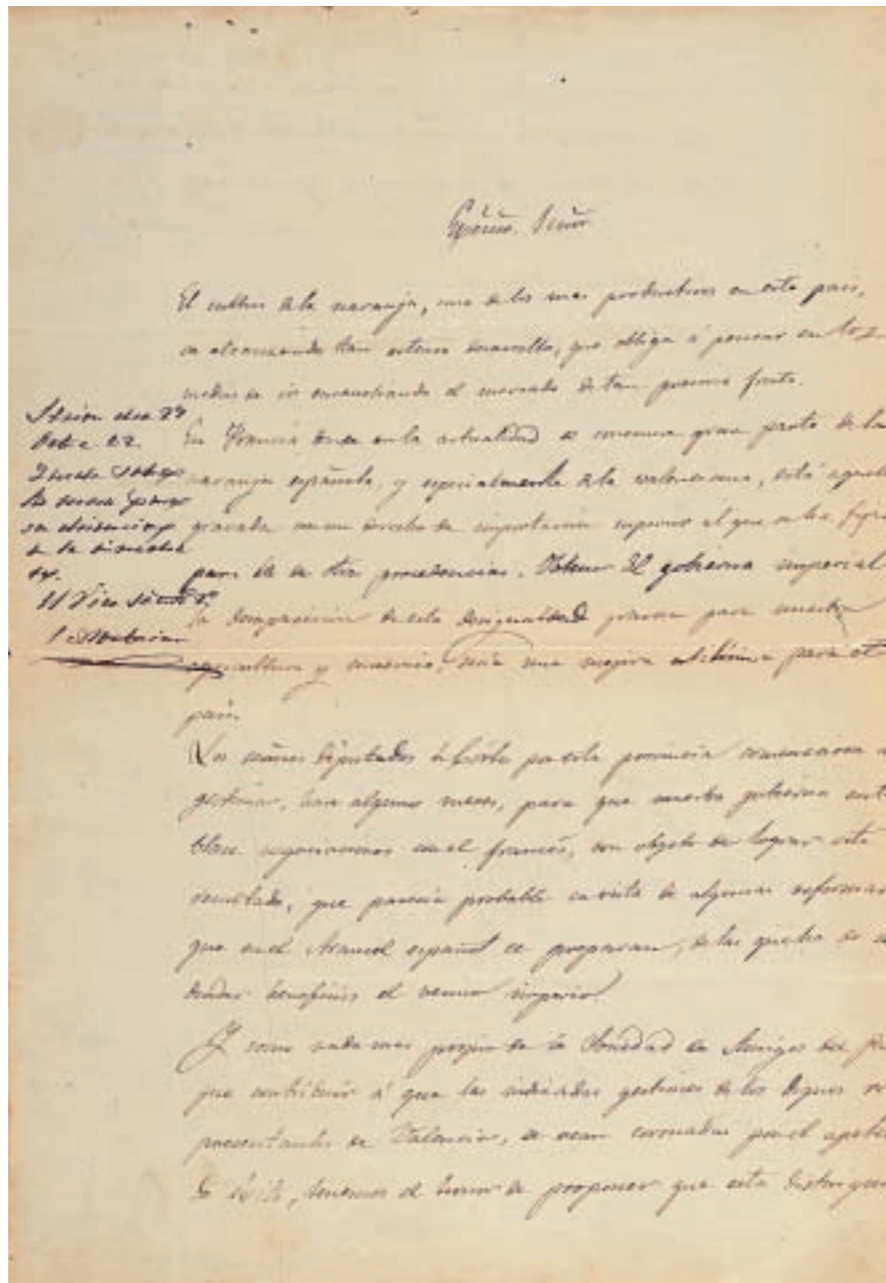 Excmo. Señor
El cultivo de la naranja, uno de los mas productivos en este pais,
va alcanzando tan estenso desarrollo, que obliga á pensar en los
medios de ir ensanchando el mercado de tan precioso fruto.
En Francia donde en la actualidad se consume gran parte de la
naranja española, y especialmente de la valenciana, está aquella
gravada con un derecho de importacion superior al que en los fija
para la de otras procedencias. Obtener del gobierno imperial
la desaparicion de esta desigualdad gravosa para nuestra
agricultura y comercio, seria una mejora utilísima para el
pais.
Los señores Diputados á Cortes por esta provincia comenzaron á
gestionar, hace algunos meses, para que nuestro gobierno enta
blase negociaciones con el francés, con objeto de lograr este
resultado, que parecia probable en vista de algunas reformas
que en el Arancel español se preparan, de las que ha de
beneficios el vecino imperio.
Y como nada mas propio de la Sociedad de Amigos del Pais
que contribuir á que las indicadas gestiones de los dignos re
presentantes de Valencia, se vean coronadas por el apeteci
do éxito, tenemos el honor de proponer que esta distingui
Sesion del 29
Octe